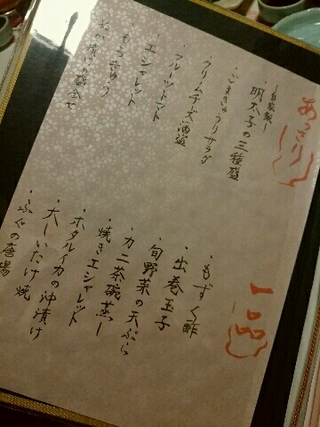 あっさり
・自家製
明太子の三種盛
・ごまきゅうりサラダ
・クリームチーズ酒盗
・フルーツトマト
・エシャレット
・もろきゅう
一品
・もずく酢
・出巻玉子
・旬野菜の天ぷら
・カニ茶碗蒸し
・焼きエシャレット
・ホタルイカの沖漬け
・大しいたけ焼
・ふぐの唐揚